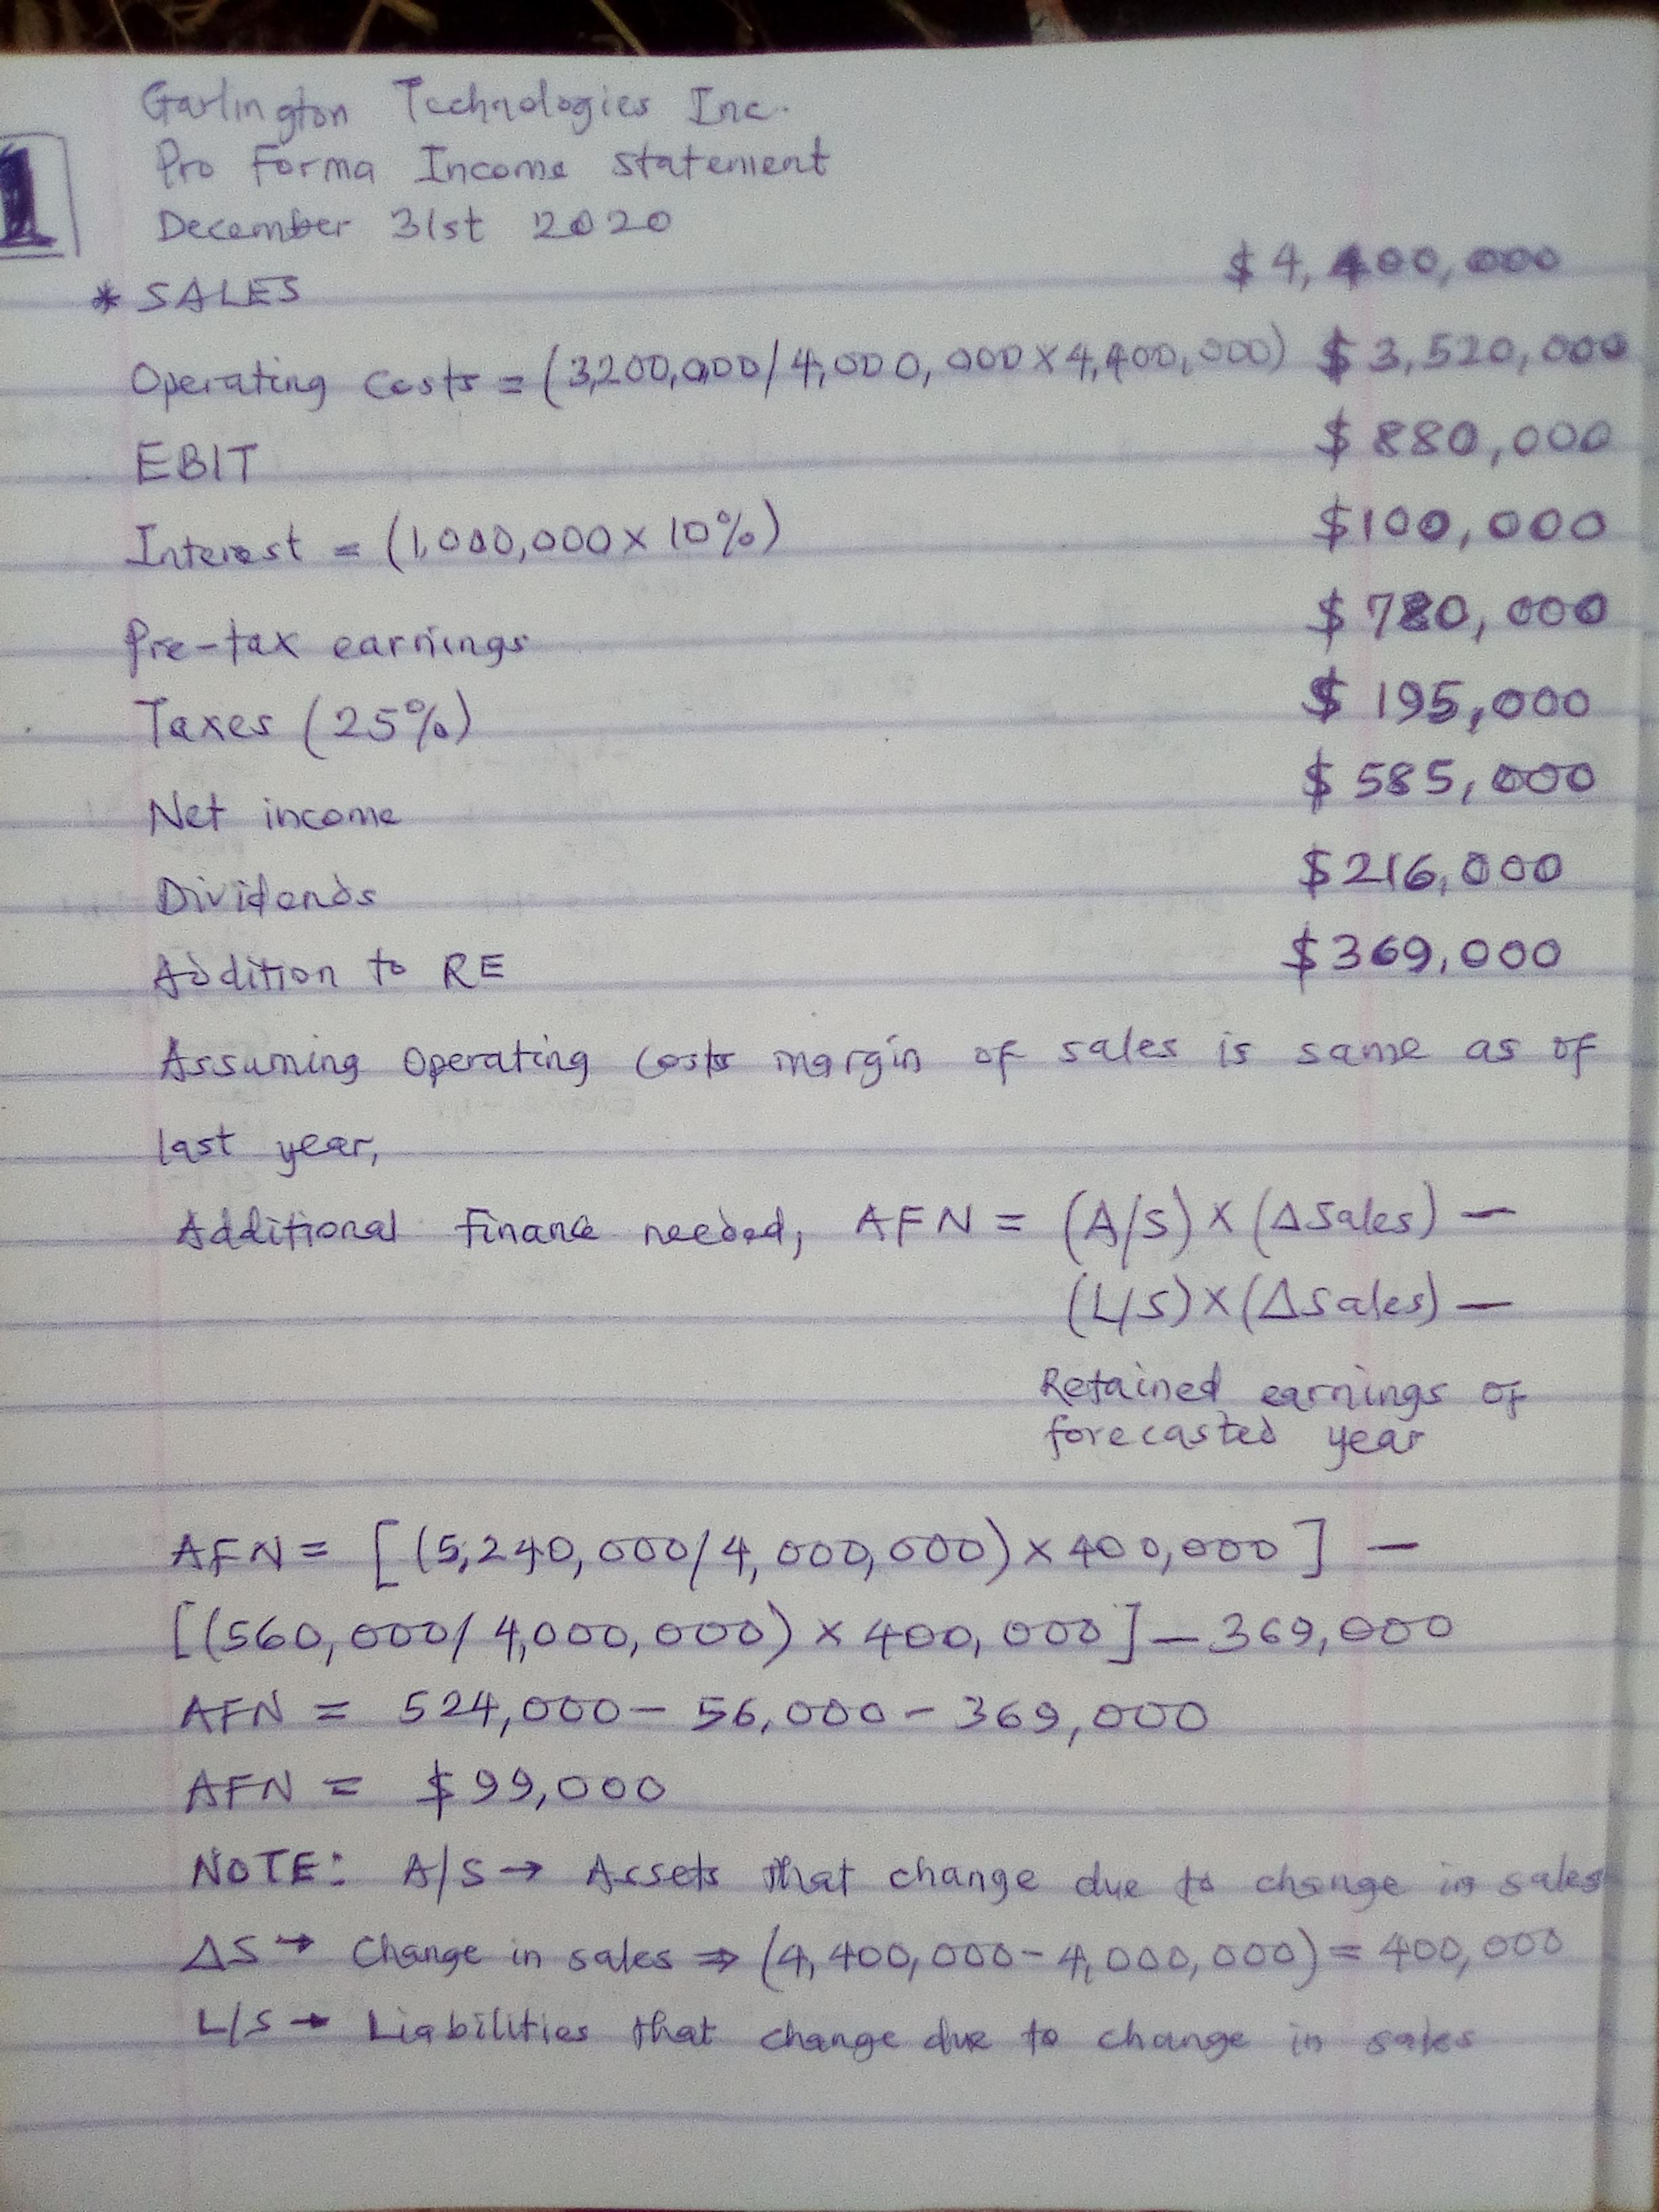 1
Garlington Technologies Inc.
Pro Forma Income statement
December 31st 2020
* SALES $4,400,000
Operating Costs = (3,200,000/4,000,000 x 4,400,000) $3,520,000
EBIT $880,000
Interest = (1,000,000 x 10%) $100,000
Pre-tax earnings $780,000
Taxes (25%) $195,000
Net income $585,000
Dividends $216,000
Addition to RE $369,000
Assuming Operating Costs margin of sales is same as of
last year,
Additional Finance needed, AFN = (A/S) x (ΔSales) —
(L/S) x (ΔSales) —
Retained earnings of
forecasted year
AFN = [(5,240,000/4,000,000) x 400,000] —
[(560,000/4,000,000) x 400,000] — 369,000
AFN = 524,000 - 56,000 - 369,000
AFN = $99,000
NOTE: A/S → Assets that change due to change in sales
ΔS → Change in sales ⇒ (4,400,000 - 4,000,000) = 400,000
L/S → Liabilities that change due to change in sales